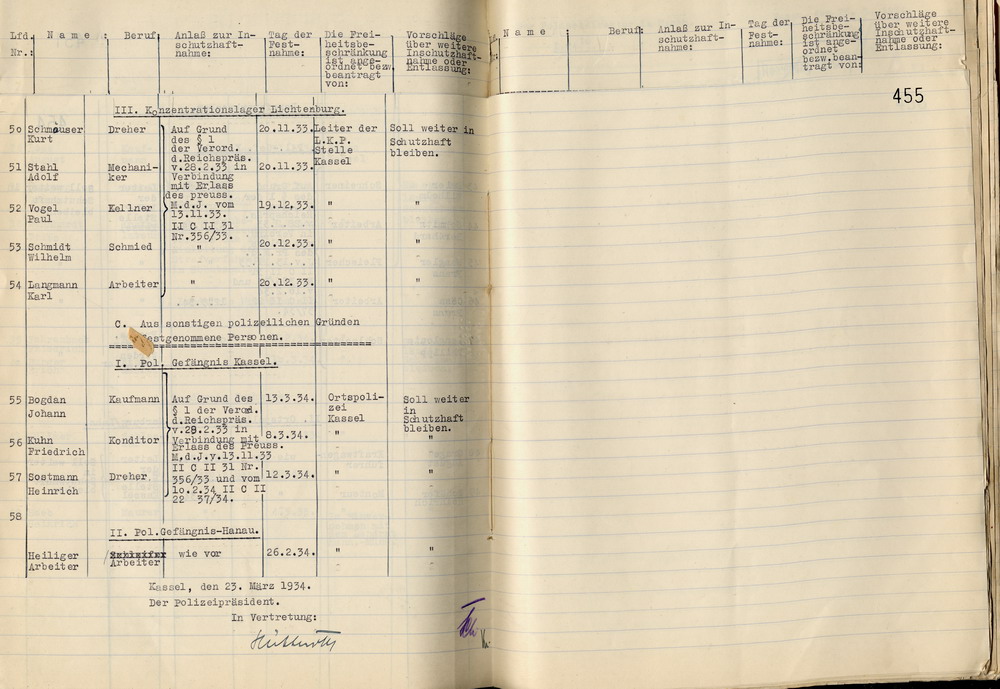 Lfd. Nr.: N a m e : Beruf: Anlaß zur In-schutzhaft-nahme: Tag der Fest-nahme: Die Frei-heitsbe-schränkung ist ange-ordnet bezw. beantragt von: Vorschläge über weitere Inschutzhaft-nahme oder Entlassung:
III. Konzentrationslager Lichtenburg.
50 Schmauser Dreher Auf Grund 20.11.33. Leiter der Soll weiter in
Kurt des § 1 L.K.P. Schutzhaft
der Verord. Stelle bleiben.
d.Reichspräs. Kassel
51 Stahl Mechani- v.28.2.33 in 20.11.33.
Adolf ker Verbindung
mit Erlass
des preuss.
52 Vogel Kellner M.d.J. vom 19.12.33. " "
Paul 13.11.33.
II C II 31
Nr.356/33.
53 Schmidt Schmied " 20.12.33. " "
Wilhelm
54 Langmann Arbeiter " 20.12.33. " "
Karl
C. Aus sonstigen polizeilichen Gründen
festgenommene Personen.
I. Pol. Gefängnis Kassel.
55 Bogdan Kaufmann Auf Grund des 13.3.34. Ortspoli- Soll weiter
Johann § 1 der Verod. zei in
d.Reichspräs. Kassel Schutzhaft
v.28.2.33 in bleiben.
56 Kuhn Konditor Verbindung mit 8.3.34. " "
Friedrich Erlass des Preuss.
M.d.J.v.13.11.33
II C II 31 Nr.
57 Sostmann Dreher 356/33 und vom 12.3.34. " "
Heinrich 10.2.34 II C II
22 37/34.
58
II. Pol.Gefängnis-Hanau.
Heiliger wie vor 26.2.34. " "
Arbeiter Arbeiter
Kassel, den 23. März 1934.
Der Polizeipräsident.
In Vertretung:
N a m e : Beruf: Anlaß zur In-schutzhaft-nahme: Tag der Fest-nahme: Die Frei-heitsbe-schränkung ist ange-ordnet bezw.bean-tragt von: Vorschläge über weitere Inschutzhaft-nahme oder Entlassung:
455